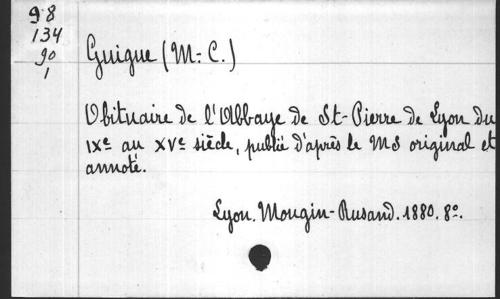 98
134
90
1
Guigue (M.-C.)
Obituaire de l'Abbaye de St-Pierre de Lyon du
IXe au XVe siècle, publié d'après le MS original et
annoté.
Lyon. Mougin-Rusand. 1880. 8o.